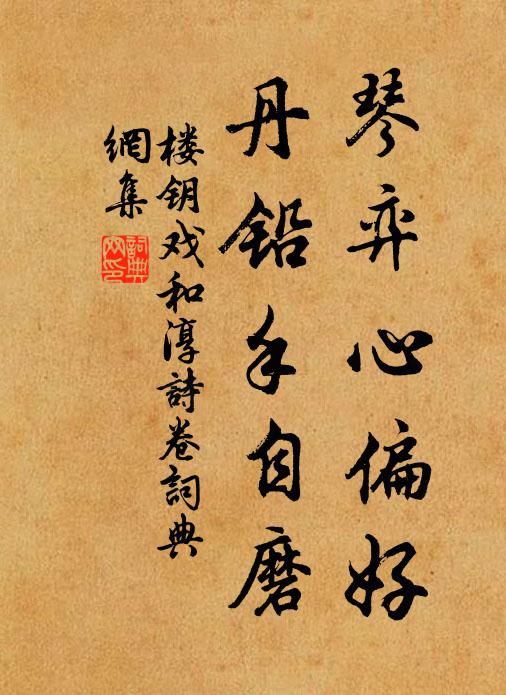 琴弈心偏好
丹铅手自磨
楼钥戏和淳詩卷詞典
網集
詞典
网印